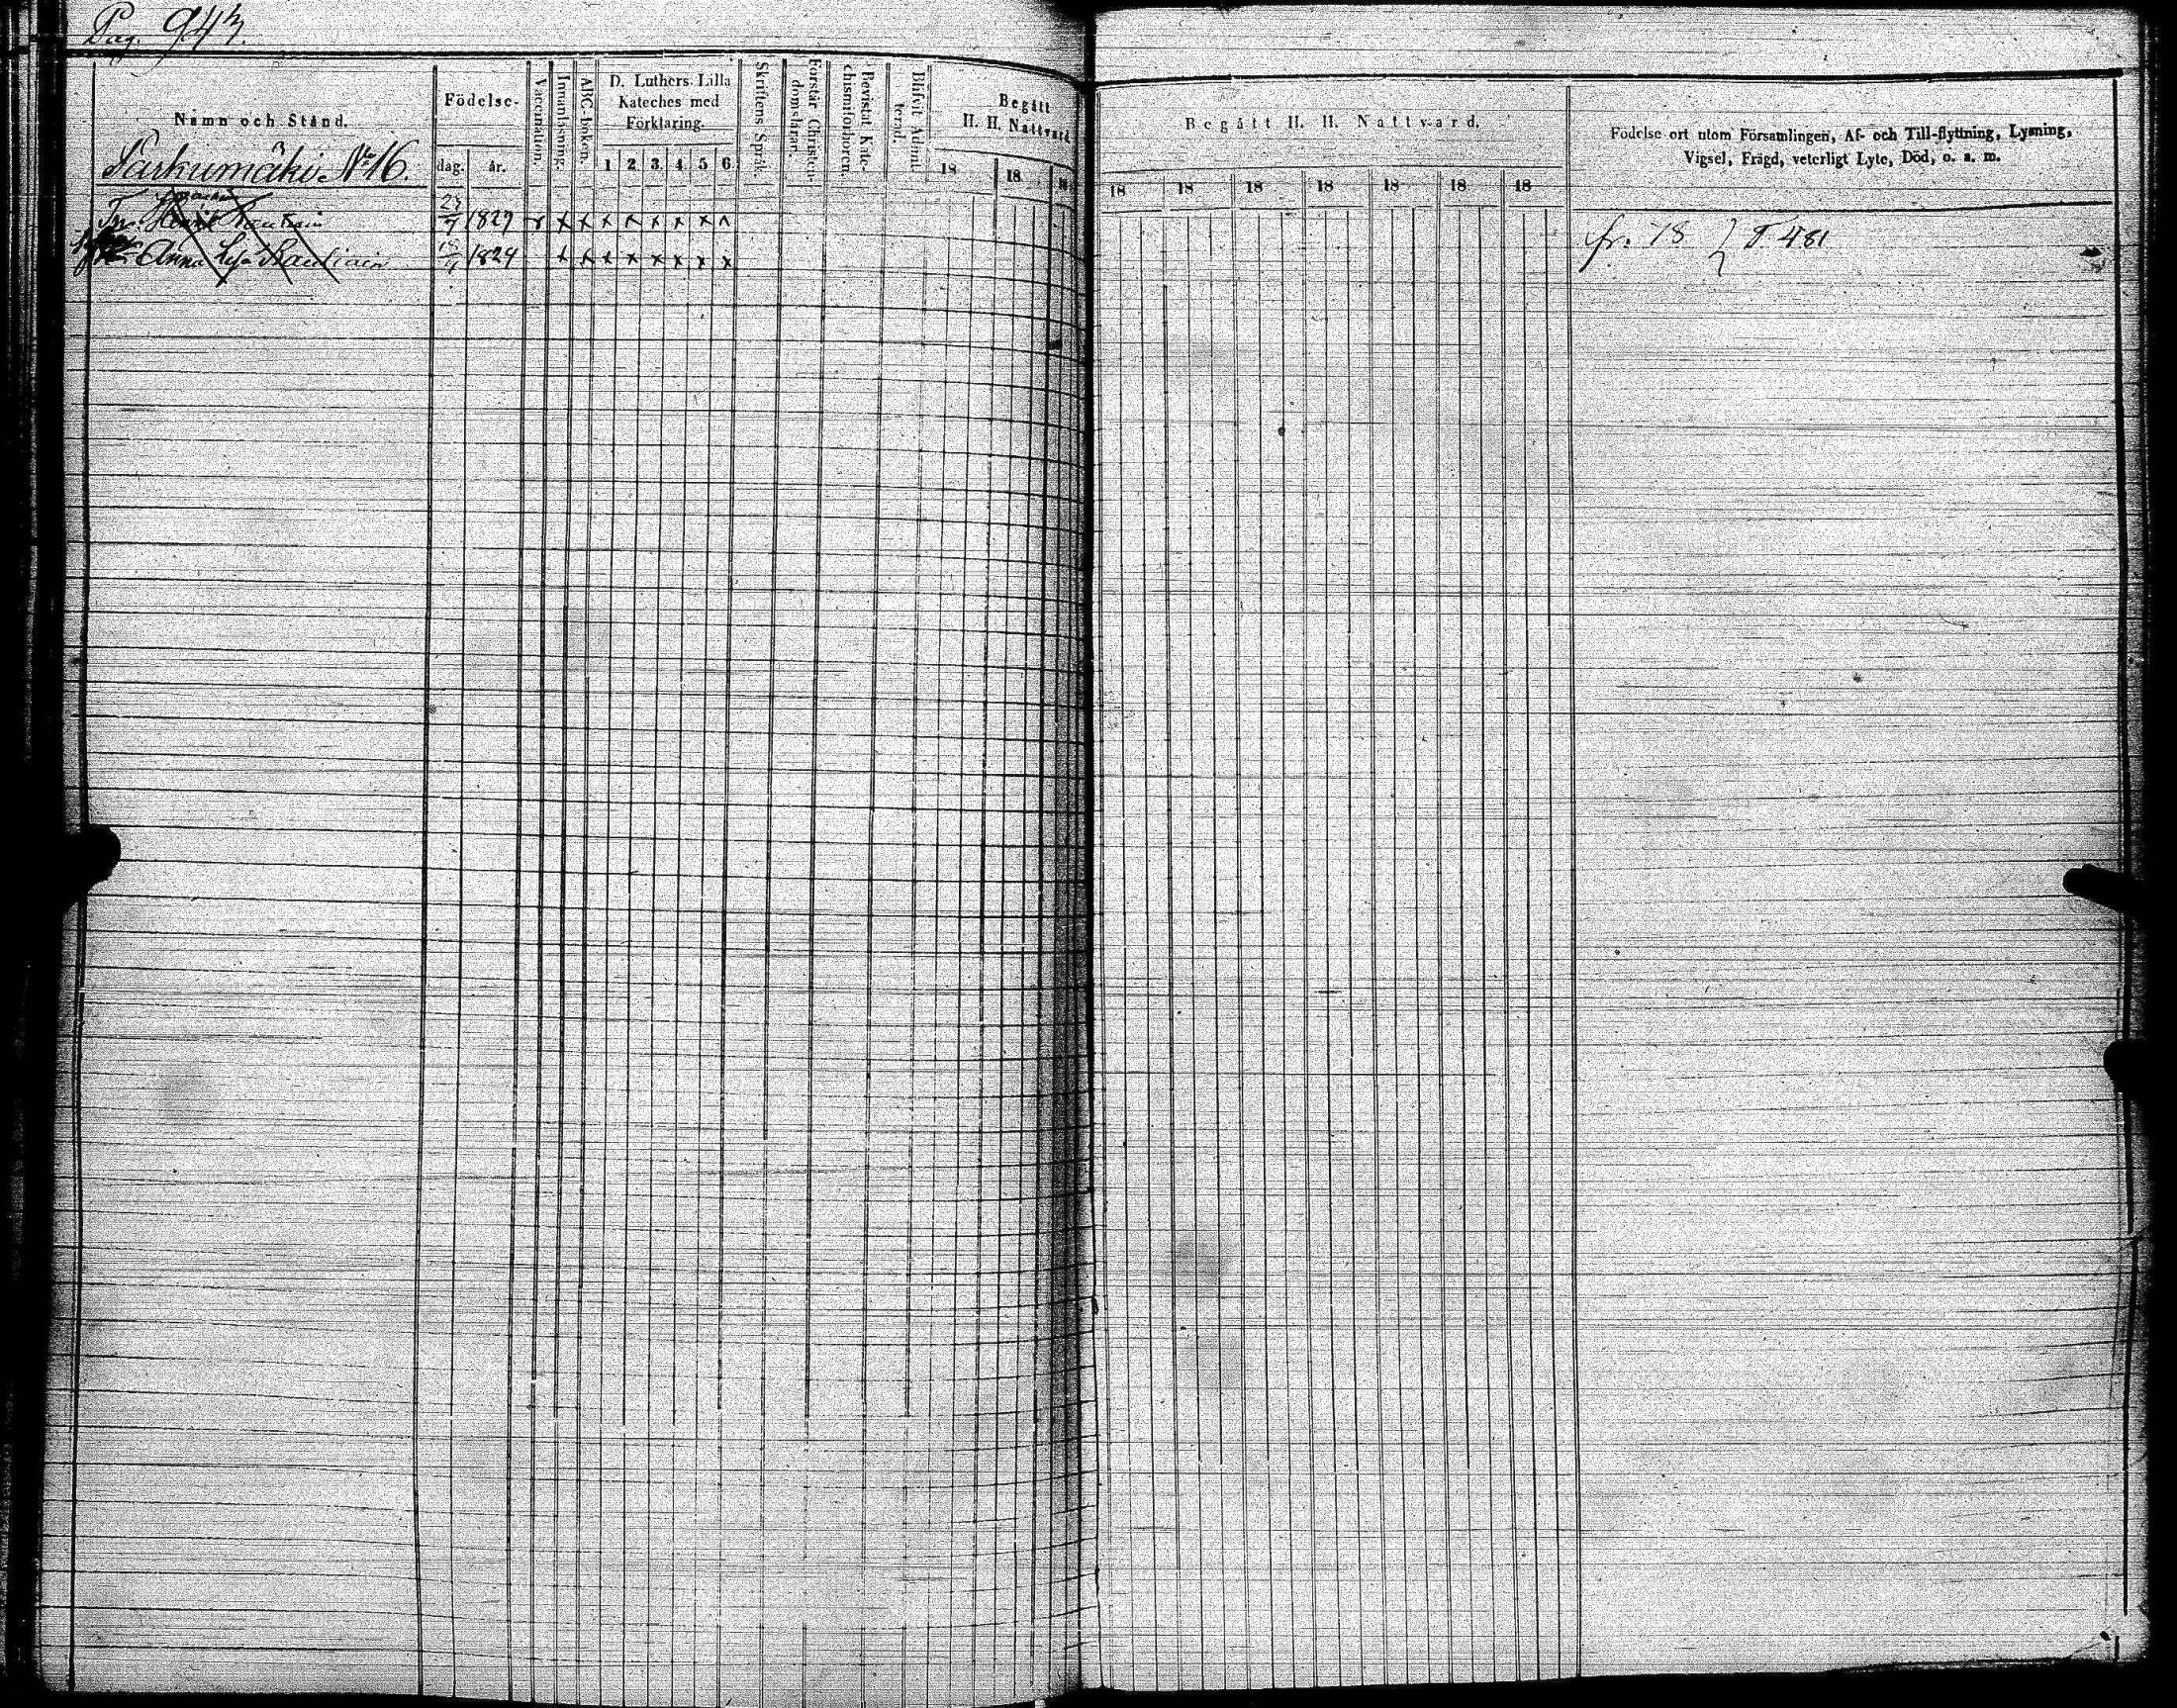 Pag. 943.
Namn och Stånd.
Födelse-
dag. år.
Vaccination.
Innanläsning.
ABC-boken.
D. Luthers Lilla
Kateches med
Förklaring.
1 2 3. 4. 5 6.
Skriftens Språk.
Förstår Christen-
domslärar.
Bevistat Kate-
chismiförhören.
Blifvit Admit-
terad.
Begått
H. H. Nattvard
18 18 18
Begått H. H. Nattvard.
18 18 18 18 18 18 18
Födelse-ort utom Församlingen, Af- och Till-flyttning, Lysning,
Vigsel, Frägd, veterligt Lyte, Död, o. s. m.
Sarkumäki No 16.
1829 x x x x x x x x
fr. 78 } T 481
Anna Lisa 1824 x x x x x x x x